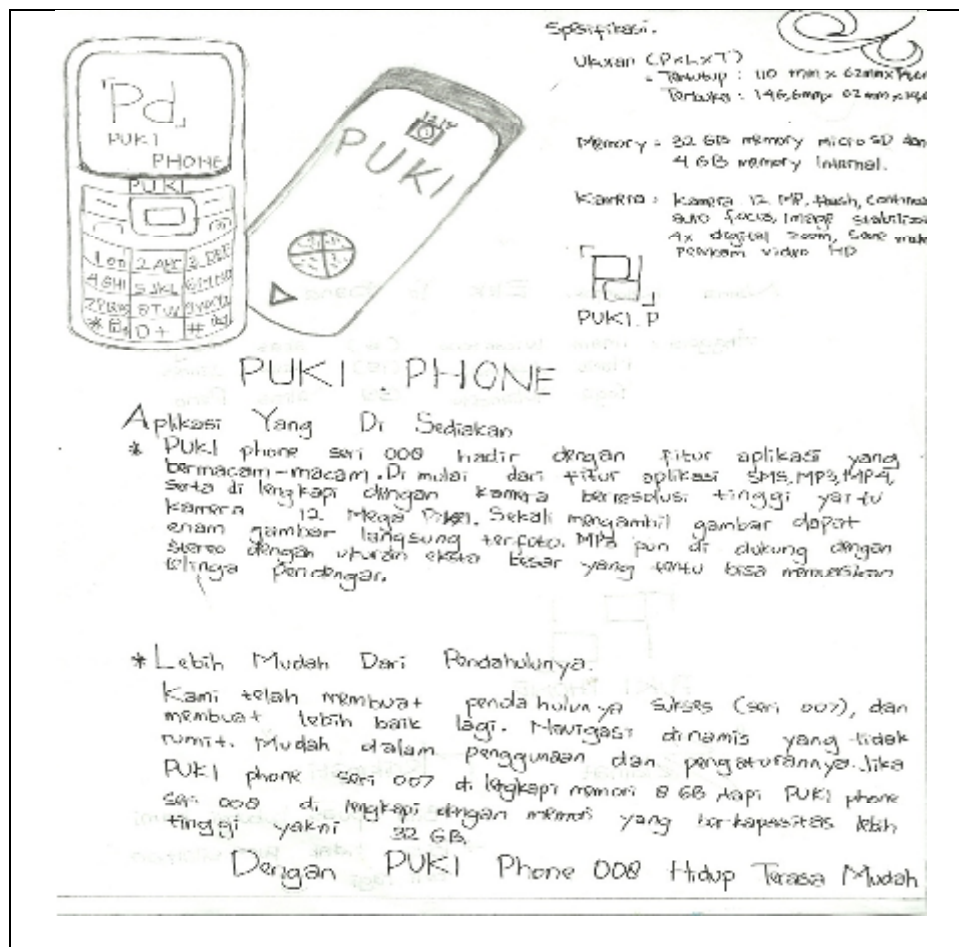 Spesifikasi.
Ukuran (PxLxT)
- Tertutup : 110 mm x 62mm x
Terbuka : 146,6mm x 62 mm x
Memory : 32 GB memory micro SD dan
4 GB memory Internal.
Kamera : Kamera 12 MP, flush,
auto focus, Image
4x digital zoom,
Perekam video HD
Pd
PUKI . P
Pd
PUKI
PHONE
PUKI
2 ABC
4 GHI 5 JKL
8 TUV
* 0+ #
PUKI
PUKI . PHONE
Aplikasi Yang Di Sediakan
* PUKI phone seri 008 hadir dengan fitur aplikasi yang
bermacam-macam. Di mulai dari fitur aplikasi SMS, MP3, MP4,
serta di lengkapi dengan kamera berresolusi tinggi yaitu
kamera 12 Mega Pixel. Sekali mengambil gambar dapat
enam gambar langsung terfoto. pun di dukung dengan
stereo dengan ukuran eksta besar yang tentu bisa
telinga pendengar.
* Lebih Mudah Dari Pendahulunya.
Kami telah membuat pendahulunya sukses (seri 007), dan
membuat lebih baik lagi. Navigasi dinamis yang tidak
rumit. Mudah dalam penggunaan dan pengaturannya. Jika
PUKI phone seri 007 di lengkapi memori 8 GB tapi PUKI phone
seri 008 di lengkapi dengan memori yang ber-kapasitas lebih
tinggi yakni 32 GB.
Dengan PUKI Phone 008 Hidup Terasa Mudah